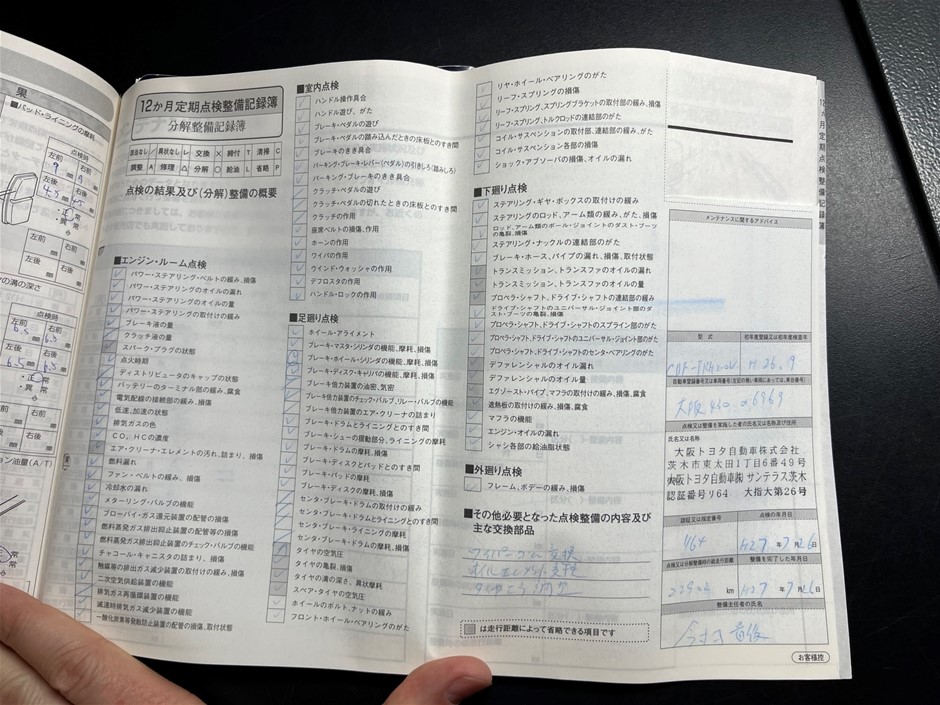 果
■パッド・ライニングの摩耗
点検時
左前
右前
左後
右後
左前
右前
左後
右後
の溝の深さ
点検時
左前
右前
左後
右後
左前
右前
左後
右後
12か月定期点検整備記録簿
分解整備記録簿
該当なし / 異状なし レ 交換 × 締付 T 清掃 C
調整 A 修理 △ 分解 ○ 給油 L 省略 P
点検の結果及び(分解)整備の概要
■エンジン・ルーム点検
パワー・ステアリング・ベルトの緩み、損傷
パワー・ステアリングのオイルの漏れ
パワー・ステアリングのオイルの量
パワー・ステアリングの取付けの緩み
ブレーキ液の量
クラッチ液の量
スパーク・プラグの状態
点火時期
ディストリビュータのキャップの状態
バッテリーのターミナル部の緩み、腐食
電気配線の接続部の緩み、損傷
低速、加速の状態
排気ガスの色
CO、HCの濃度
エア・クリーナ・エレメントの汚れ、詰まり、損傷
燃料漏れ
ファン・ベルトの緩み、損傷
冷却水の漏れ
メターリング・バルブの機能
ブローバイ・ガス還元装置の配管の損傷
燃料蒸発ガス排出抑止装置の配管等の損傷
燃料蒸発ガス排出抑止装置のチェック・バルブの機能
チャコール・キャニスタの詰まり、損傷
触媒等の排出ガス減少装置の取付けの緩み、損傷
二次空気供給装置の機能
排気ガス再循環装置の機能
減速時排気ガス減少装置の機能
一酸化炭素等発散防止装置の配管の損傷、取付状態
■室内点検
ハンドル操作具合
ハンドル遊び、がた
ブレーキ・ペダルの遊び
ブレーキ・ペダルの踏み込んだときの床板とのすき間
ブレーキのきき具合
パーキング・ブレーキ・レバー(ペダル)の引きしろ(踏みしろ)
パーキング・ブレーキのきき具合
クラッチ・ペダルの遊び
クラッチ・ペダルの切れたときの床板とのすき間
クラッチの作用
座席ベルトの損傷、作用
ホーンの作用
ワイパの作用
ウインド・ウォッシャの作用
デフロスタの作用
ハンドル・ロックの作用
■足廻り点検
ホイール・アライメント
ブレーキ・マスタ・シリンダの機能、摩耗、損傷
ブレーキ・ホイール・シリンダの機能、摩耗、損傷
ブレーキ・ディスク・キャリパの機能、摩耗、損傷
ブレーキ倍力装置の油密、気密
ブレーキ倍力装置のチェック・バルブ、リレー・バルブの機能
ブレーキ倍力装置のエア・クリーナの詰まり
ブレーキ・ドラムとライニングとのすき間
ブレーキ・シューの摺動部分、ライニングの摩耗
ブレーキ・ドラムの摩耗、損傷
ブレーキ・ディスクとパッドとのすき間
ブレーキ・パッドの摩耗
ブレーキ・ディスクの摩耗、損傷
センタ・ブレーキ・ドラムの取付けの緩み
センタ・ブレーキ・ドラムとライニングとのすき間
センタ・ブレーキ・ライニングの摩耗
センタ・ブレーキ・ドラムの摩耗、損傷
タイヤの空気圧
タイヤの亀裂、損傷
タイヤの溝の深さ、異状摩耗
スペア・タイヤの空気圧
ホイールのボルト、ナットの緩み
フロント・ホイール・ベアリングのがた
リヤ・ホイール・ベアリングのがた
リーフ・スプリングの損傷
リーフ・スプリング、スプリングブラケットの取付部の緩み、損傷
リーフ・スプリング、トルクロッドの連結部のがた
コイル・サスペンションの取付部、連結部の緩み、がた
コイル・サスペンション各部の損傷
ショック・アブソーバの損傷、オイルの漏れ
■下廻り点検
ステアリング・ギヤ・ボックスの取付けの緩み
ステアリングのロッド、アーム類の緩み、がた、損傷
ロッド、アーム類のボール・ジョイントのダスト・ブーツの亀裂、損傷
ステアリング・ナックルの連結部のがた
ブレーキ・ホース、パイプの漏れ、損傷、取付状態
トランスミッション、トランスファのオイルの漏れ
トランスミッション、トランスファのオイルの量
プロペラ・シャフト、ドライブ・シャフトの連結部の緩み
ドライブ・シャフトのユニバーサル・ジョイント部のダスト・ブーツの亀裂、損傷
プロペラ・シャフト、ドライブ・シャフトのスプライン部のがた
プロペラ・シャフト、ドライブ・シャフトのユニバーサル・ジョイント部のがた
プロペラ・シャフト、ドライブ・シャフトのセンタ・ベアリングのがた
デファレンシャルのオイル漏れ
デファレンシャルのオイル量
エグゾースト・パイプ、マフラの取付けの緩み、損傷、腐食
遮熱板の取付けの緩み、損傷、腐食
マフラの機能
エンジン・オイルの漏れ
シャシ各部の給油脂状態
■外廻り点検
フレーム、ボデーの緩み、損傷
■その他必要となった点検整備の内容及び
主な交換部品
ワイパーゴム交換
オイルエレメント交換
は走行距離によって省略できる項目です
12ヵ月定期点検整備記録簿
メンテナンスに関するアドバイス
型 式
初年度登録又は初年度検査年
H.26.9
自動車登録番号又は車両番号(左記の無い車両にあっては、車台番号)
大阪430.の6969
点検又は整備を実施した者の氏名又は名称及び住所
氏名又は名称
大阪トヨタ自動車株式会社
茨木市東太田1丁目6番49号
大阪トヨタ自動車㈱ サンテラス茨木
認証番号リ64 大指大第26号
認証又は指定番号
点検の年月日
464
H27年7月26日
点検又は分解整備時の総走行距離
整備を完了した年月日
km
H27年7月26日
整備主任者の氏名
お客様控